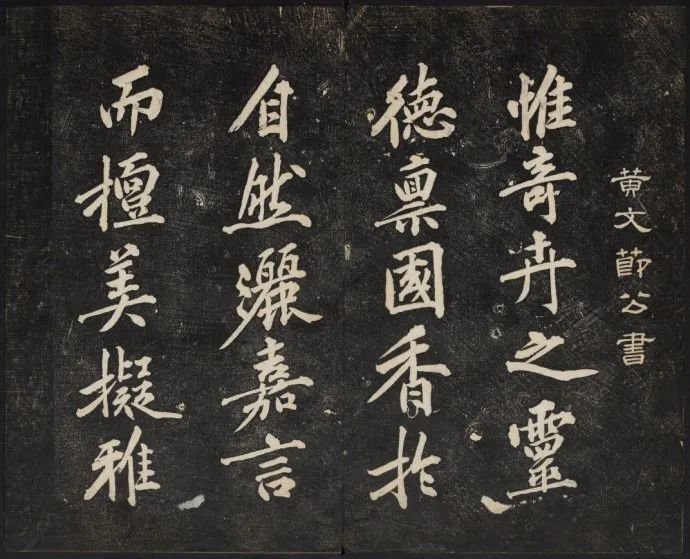 黄文節公書
惟奇卉之靈
德稟國香扵
自然灑嘉言
而擅美擬雅